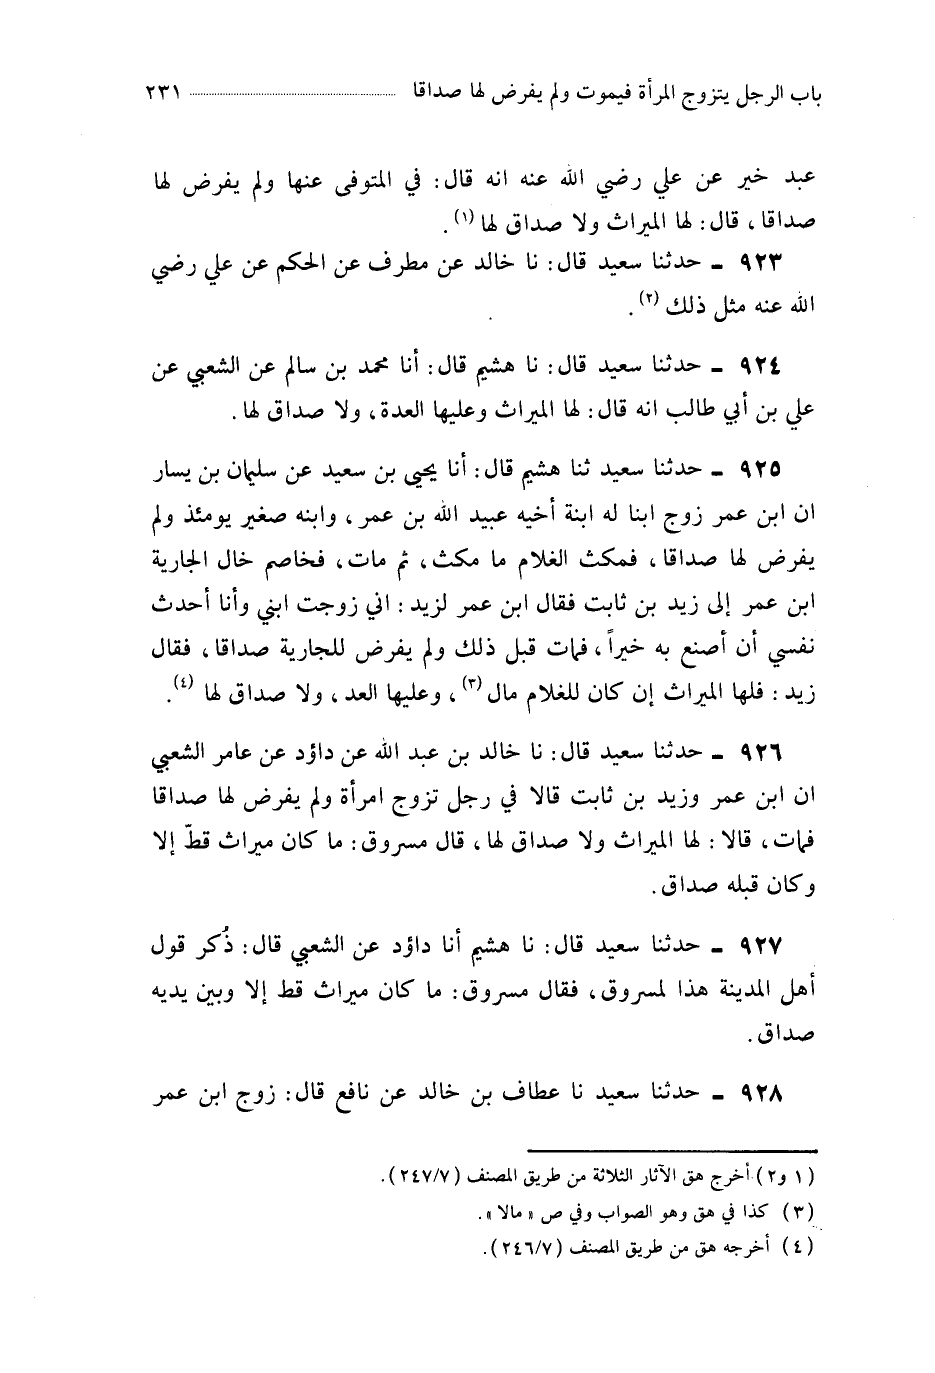 باب الرجل يتزوج المرأة فيموت ولم يفرض لها صداقا ........ ٢٣١
عبد خير عن علي رضي الله عنه انه قال: في المتوفى عنها ولم يفرض لها
صداقا، قال: لها الميراث ولا صداق لها (١).
٩٢٣ ـ حدثنا سعيد قال: نا خالد عن مطرف عن الحكم عن علي رضي
الله عنه مثل ذلك (٢).
٩٢٤ ـ حدثنا سعيد قال: نا هشيم قال: أنا محمد بن سالم عن الشعبي عن
علي بن أبي طالب انه قال: لها الميراث وعليها العدة، ولا صداق لها.
٩٢٥ ـ حدثنا سعيد ثنا هشيم قال: أنا يحيى بن سعيد عن سليمان بن يسار
ان ابن عمر زوج ابنا له ابنة أخيه عبيد الله بن عمر، وابنه صغير يومئذ ولم
يفرض لها صداقا، فمكث الغلام ما مكث، ثم مات، فخاصم خال الجارية
ابن عمر إلى زيد بن ثابت فقال ابن عمر لزيد: اني زوجت ابني وأنا أحدث
نفسي أن أصنع به خيراً، فمات قبل ذلك ولم يفرض للجارية صداقا، فقال
زيد: فلها الميراث إن كان للغلام مال (٣)، وعليها العد، ولا صداق لها (٤).
٩٢٦ ـ حدثنا سعيد قال: نا خالد بن عبد الله عن داؤد عن عامر الشعبي
ان ابن عمر وزيد بن ثابت قالا في رجل تزوج امرأة ولم يفرض لها صداقا
فمات، قالا: لها الميراث ولا صداق لها، قال مسروق: ما كان ميراث قطّ إلا
وكان قبله صداق.
٩٢٧ ـ حدثنا سعيد قال: نا هشيم أنا داؤد عن الشعبي قال: ذُكر قول
أهل المدينة هذا لمسروق، فقال مسروق: ما كان ميراث قط إلا وبين يديه
صداق.
٩٢٨ ـ حدثنا سعيد نا عطاف بن خالد عن نافع قال: زوج ابن عمر
(١ و٢) أخرج هق الآثار الثلاثة من طريق المصنف (٢٤٧/٧).
(٣) كذا في هق وهو الصواب وفي ص «مالا».
(٤) أخرجه هق من طريق المصنف (٢٤٦/٧).